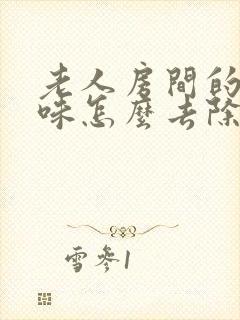 老人房間的
味怎麼去除
雪參1